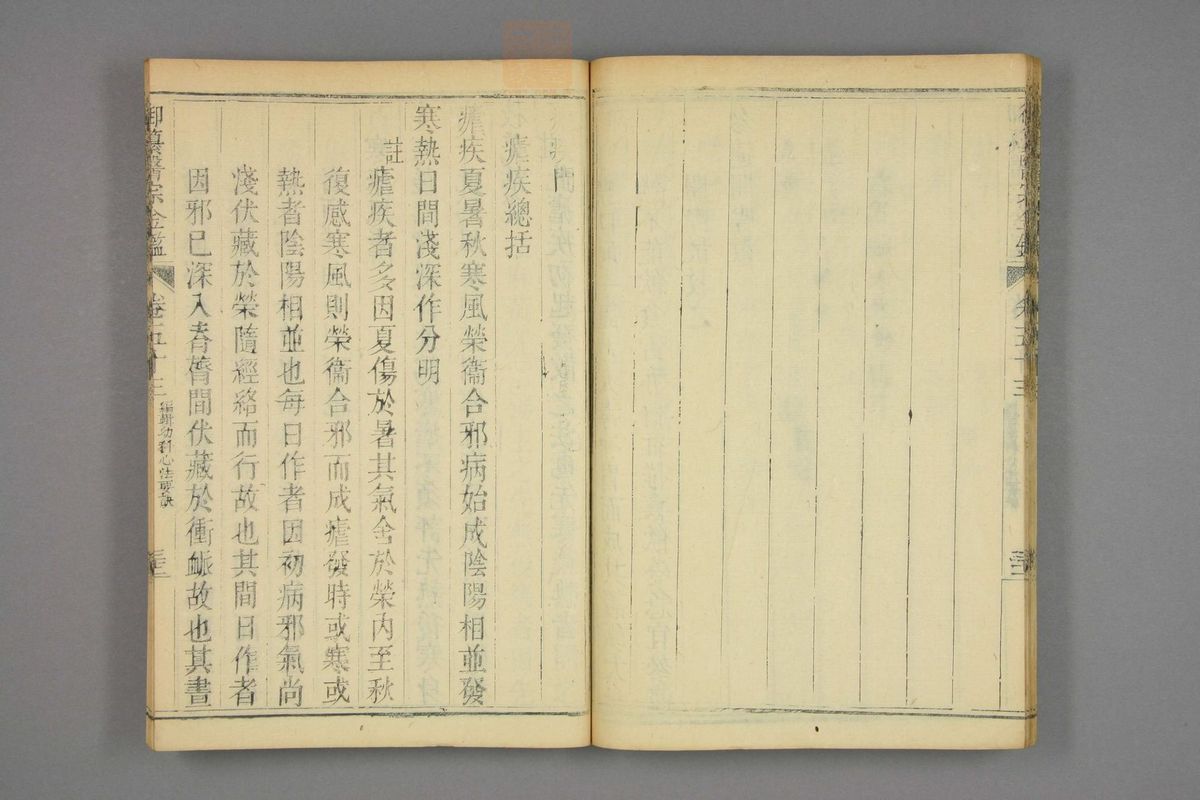 瘧疾總括
瘧疾夏暑秋寒風榮衞合邪病始成陰陽相並發
寒熱日間淺深作分明
註瘧疾者多因夏傷於暑其氣舍於榮內至秋
復感寒風則榮衞合邪而成瘧發時或寒或
熱者陰陽相並也每日作者因初病邪氣尚
淺伏藏於榮隨經絡而行故也其間日作者
因邪已深入脊膂間伏藏於衝脈故也其晝
御纂醫宗金鑑 卷五十三 編輯幼科心法要訣
卷五十三